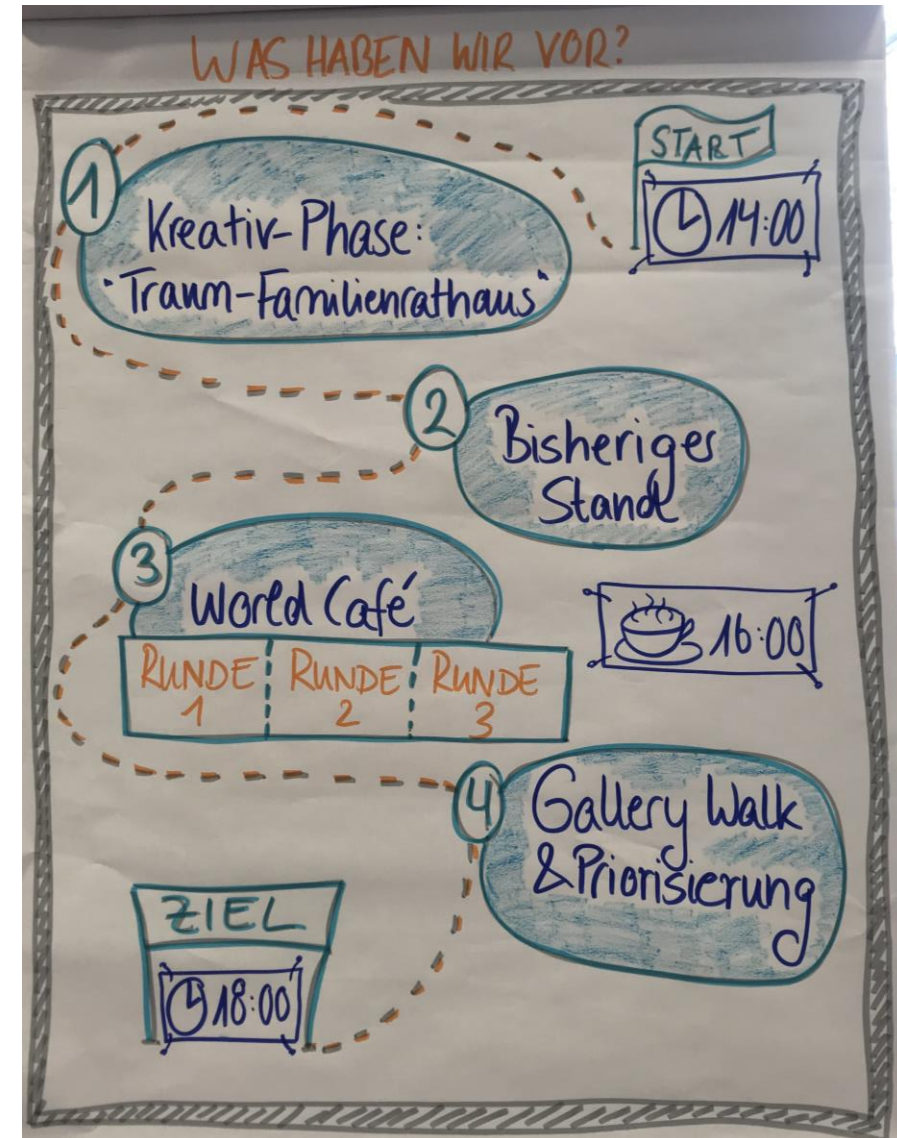 WAS HABEN WIR VOR?
START
14:00
1
Kreativ-Phase:
"Traum-Familienrathaus"
2
Bisheriger
Stand
3
World Café
RUNDE 1
RUNDE 2
RUNDE 3
16:00
4
Gallery Walk
& Priorisierung
ZIEL
18:00